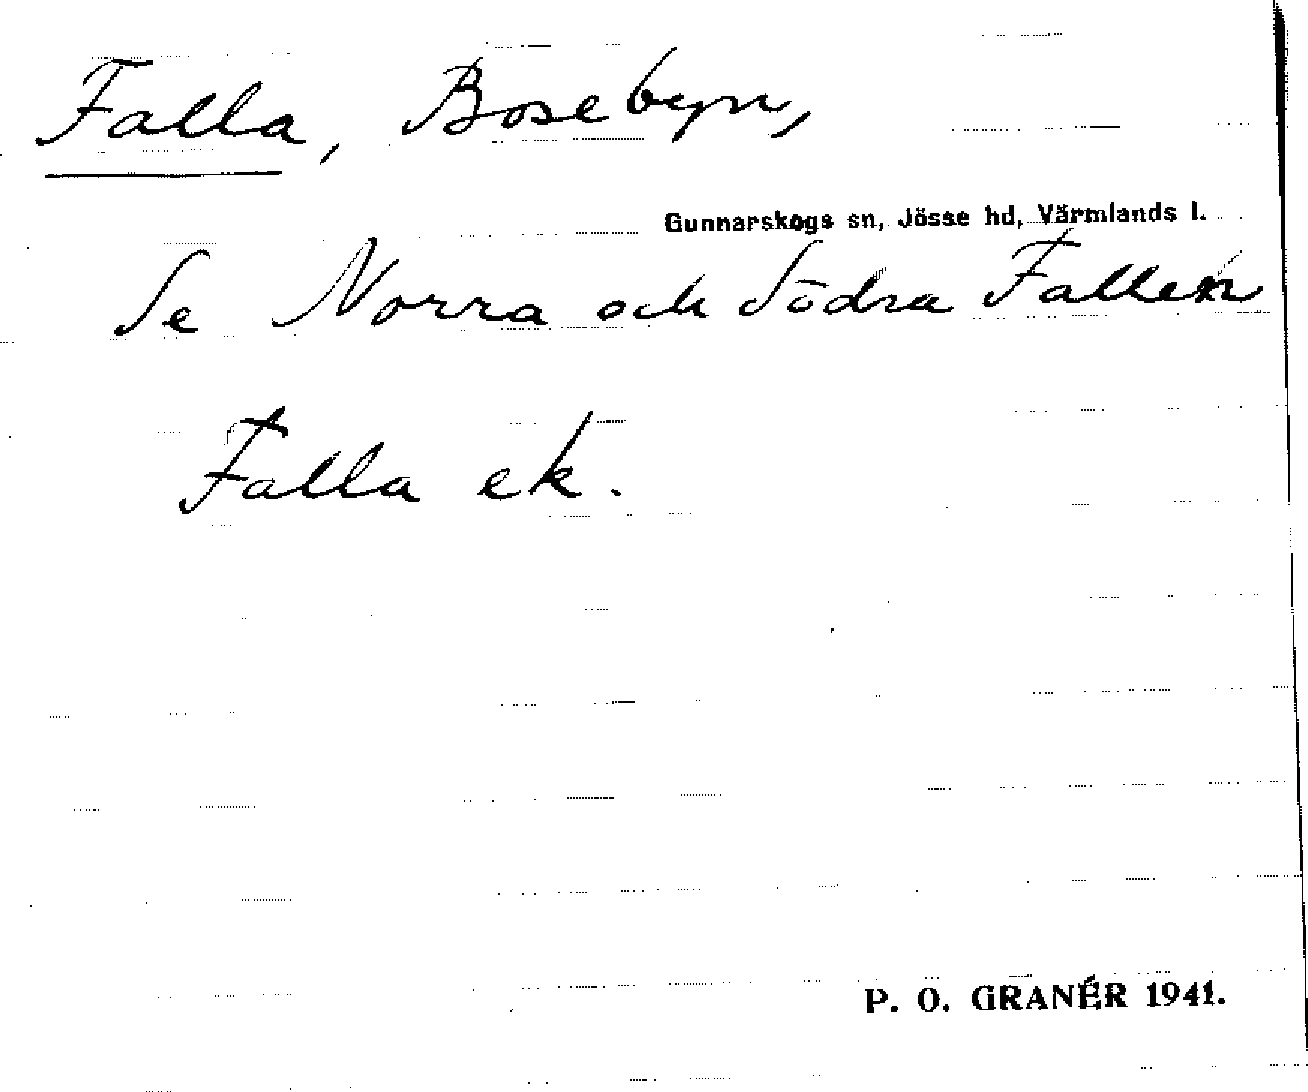 Falla, Bosebyn,
Gunnarskogs sn, Jösse hd, Värmlands l.
Se Norra och Södra Fallen
Falla ek.
P. O. GRANÉR 1941.